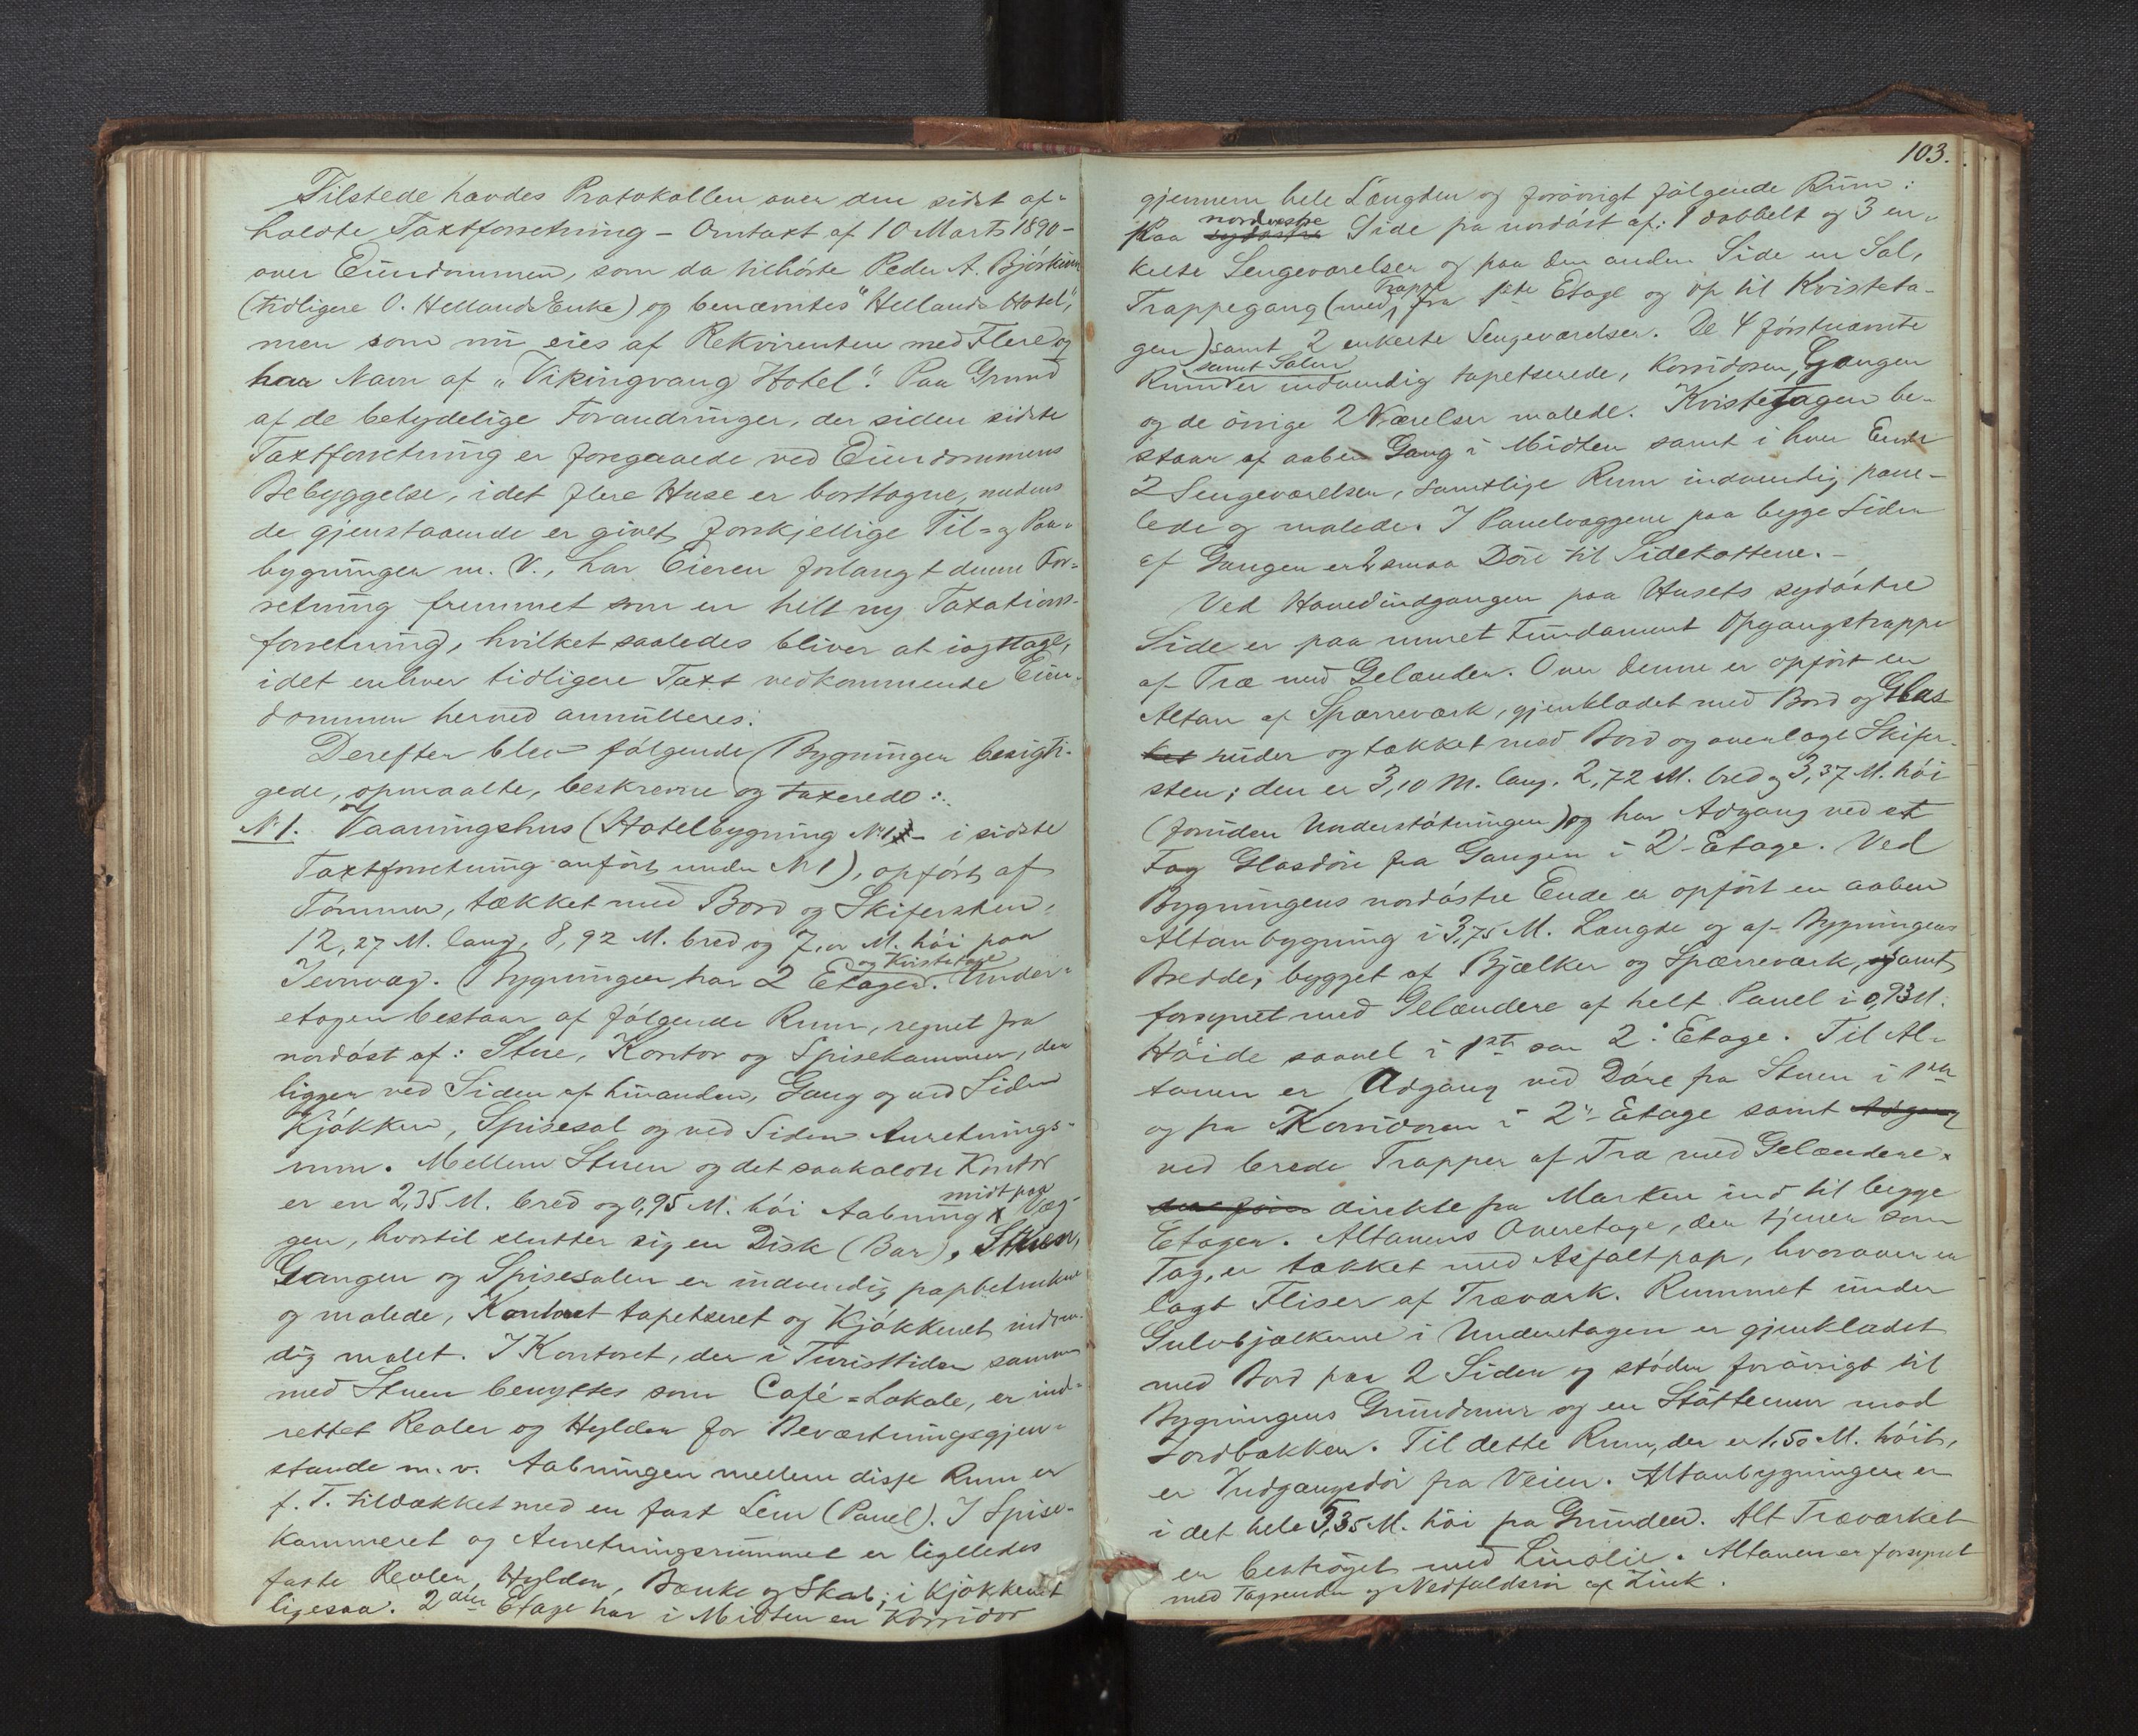 Tilstede havdes Protokollen over den sidst af-
holdte Taxtforretning - Omtaxt af 10 Marts 1890 -
over Eiendommen, som da tilhörte Peder A. Björkum
(tidligere O. Hellands Enke) og benævntes "Hellands Hotel",
men som nu eies af Rekvirenten med Flere og
har Navn af „Vikingvang Hotel". Paa Grund
af de betydelige Forandringer, der siden sidste
Taxtforretning er foregaaede ved Eiendommens
Bebyggelse, idet flere Huse er borttagne, medens
de gjenstaaende er givet forskjellige Til= og Paa-
bygninger m. V., har Eieren forlangt denne For=
retning fremmet som en helt ny Taxations-
forretning, hvilket saaledes bliver at iagttage,
idet enhver tidligere Taxt vedkommende Eien-
dommen herved annulleres.
Derefter blev fölgende Bygninger besigti-
gede, opmaalte, beskrevne og taxerede:
N 1. Vaaningshus (Hotelbygning N 1 - i sidste
Taxtforretning anfört under N 1), opfört af
Tömmer, tækket med Bord og Skifersten,
12,27 M. lang, 8,92 M. bred og M. höi paa
og Kvistetage
Jevnvæg. Bygningen har 2 Etager. Under-
etagen bestaar af fölgende Rum, regnet fra
nordöst af: Stue, Kontor og Spisekammer, der
ligger ved Siden af hinanden, Gang og ved Siden
Kjökken, Spisesal og ved Siden Anretnings-
rum. Mellem Stuen og det saakaldte Kontor
midt paa
er en 2,35 M. bred og 0,95 M. höi Aabning Væg-
gen, hvortil slutter sig en Disk (Bar). Stuen,
Gangen og Spisesalen er indvendig papbetrukne
og malede, Kontoret tapetseret og Kjökkenet indven-
dig malet. I Kontoret, der i Turisttiden sammen
med Stuen benyttes som Café=Lokale, er ind=
rettet Reoler og Hylder for Beværtningsgjen-
stande m. v. Aabningen mellem disse Rum er
f. T. tildækket med en fast Lem (Panel). I Spise-
kammeret og Anretningsrummet er ligeledes
faste Reoler, Hylder, Bænke og Skab; i Kjökkenet
ligesaa. 2den Etage har i Midten en Korridor
103.
gjennem hele Længden og forövrigt fölgende Rum:
nordvestre
Paa sydöstre Side fra nordöst af: 1 dobbelt og 3 en-
kelte Sengeværelser og paa den anden Side en Sal,
Trappe
Trappegang (med fra 1ste Etage og op til Kvisteta-
gen) samt 2 enkelte Sengeværelser. De 4 förstnævnte
samt Salen
Rum er indvendig tapetserede, Korridoren, Gangen
og de övrige 2 Værelser malede. Kvistetagen be-
staar af aaben Gang i Midten samt i hver Ende
2 Sengeværelser, samtlige Rum indvendig pane-
lede og malede. I Panelvæggene paa begge Sider
af Gangen er 2 smaa Döre til Sidekottene. -
Ved Hovedindgangen paa Husets sydöstre
Side er paa muret Fundament Opgangstrappe
af Træ med Gelænder. Over denne er opfört en
Altan af Sparreværk, gjenklædet med Bord og Glas-
ruder og tækket med Bord og overlagt Skifer-
sten; den er 3,10 M. lang, 2,72 M. bred og 3,37 M. höi
(foruden Understötningen) og har Adgang ved et
Fag Glasdöre fra Gangen i 2' Etage. Ved
Bygningens nordöstre Ende er opfört en aaben
Altanbygning i 3,75 M. Længde og af Bygningens
Bredde, bygget af Bjælker og Sparreværk, samt
forsynet med Gelændere af helt Panel i 0,93 M.
Höide saavel i 1ste som 2' Etage. Til Al-
tanen er Adgang ved Döre fra Stuen i 1ste
og fra Korridoren i 2' Etage samt Adgang
ved brede Trapper af Træ med Gelændere
der förer direkte fra Marken ind til begge
Etager. Altanens Overetage, der tjener som
Tag, er tækket med Asfaltpap, hvorover er
lagt Fliser af Træværk. Rummet under
Gulvbjælkerne i Underetagen er gjenklædet
med Bord paa 2 Sider og stöder forövrigt til
Bygningens Grundmur og en Stöttemur mod
Jordbakken. Til dette Rum, der er 1,50 M. höit,
er Indgangsdör fra Veien. Altanbygningen er
i det hele 5,35 M. höi fra Grunden. Alt Træværket
er beströget med Linolie. Altanen er forsynet
med Tagrender og Nedfaldsrör af Zink.